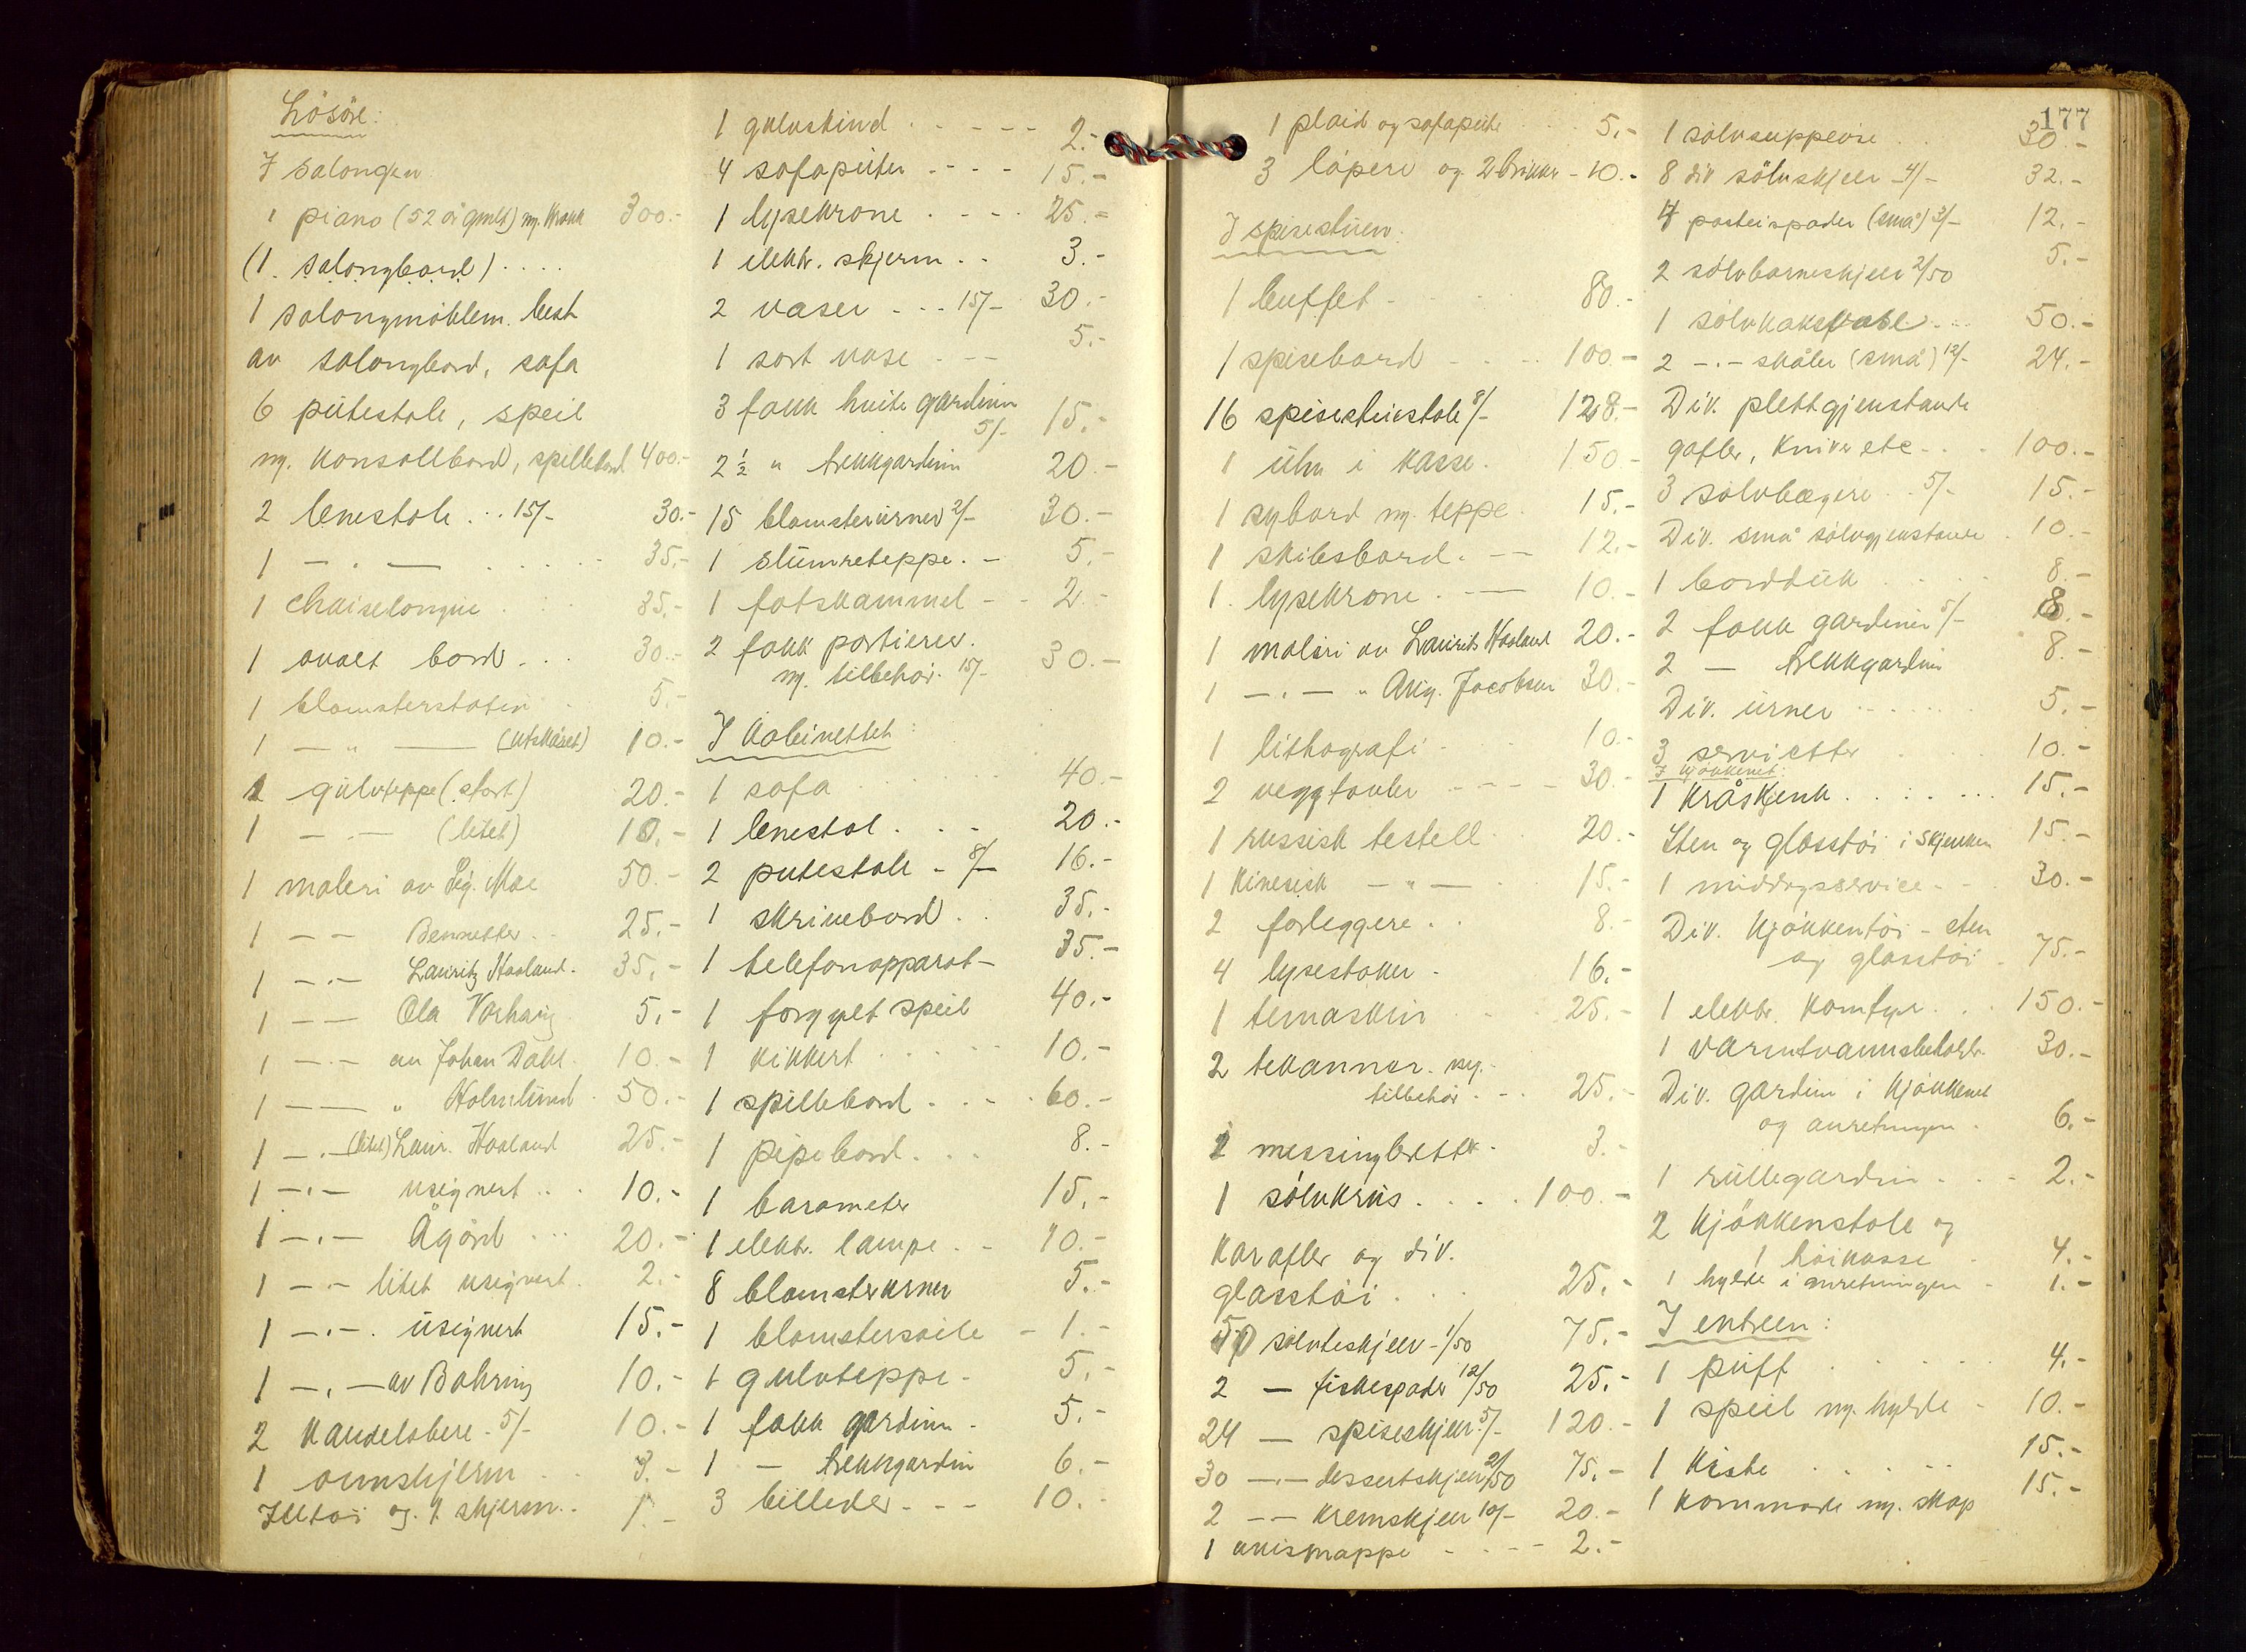 Lösöre:
I salongen
1 piano (52 år gmlt) m. krakk 300.-
(1 salongbord) ....
1 salongmöblem. best
av salongbord, sofa
6 putestole, speil
m. konsollbord, spillebord 400.-
2 lenestole ... 15/- 30.-
1 - . - ..... 35.-
1 chaiselongue ... 35.-
1 ovalt bord ... 30.-
1 blomsterstativ . 5.-
1 - " - (utskåret) 10.-
1 gulvteppe (stort) 20.-
1 - . - (litet) 10.-
1 maleri av Sig. Moe 50.-
1 - - Bennetter .. 25.-
1 - . - Lauritz Haaland. 35.-
1 - - Ola 5.-
1 - . - av Johan Dahl. 10.-
1 - - " Holmlund . 50.-
1 - . - (litet) Laur. Haaland 25.-
1 - . - usignert ... 10.-
1 - . - Ågård ... 20.-
1 - - litet usignert. 2.-
1 - . - . usignert 15.-
1 - . - av Bahring 10.-
2 kandelabere - 5/- 10.-
1 ovnskjerm .. 3.-
Ildtöi og 1 skjerm.. 1.-
1 gulvskind ..... 2.-
4 sofaputer .... 15.-
1 lysekrone .... 25.-
1 elektr. skjerm .. 3.-
2 vaser ... 15/- 30.-
1 sort vase ... 5.-
3 fakk hvite gardiner
5/- 15.-
2 ½ " trekkgardiner 20.-
15 blomsterurner 2/- 30.-
1 slumreteppe . - 5.-
1 fotskammel - - 2.-
2 fakk portierer.
m. tilbehör. 15/- 30.-
I kabinettet:
1 sofa ..... 40.-
1 lenestol ... 20.-
2 putestole - 8/- 16.-
1 skrivebord .. 35.-
1 telefonapparat - 35.-
1 forgylt speil 40.-
1 kikkert ..... 10.-
1 spillebord .... 60.-
1 pipebord ... 8.-
1 barometer 15.-
1 elektr. lampe . - 10.-
8 blomsterurner 5.-
1 blomstersöile - 1.-
1 gulvteppe - 5.-
1 fakk gardiner - 5.-
1 - trekkgardin 6.-
3 billeder - - - 10.-
177
1 plaid og sofapute ... 5.-
3 löpere og 2 brikker - 10.-
I spisestuen:
1 buffet - ... 80.-
1 spisebord .... 100.-
16 spisestuestole 8/- 128.-
1 uhr i kasse. 150.-
1 sybord m. teppe. 15.-
1 skibsbord . -- 12.-
1 lysekrone . - 10.-
1 maleri av Laurits Haaland 20.-
1 - . - " Aug. Jacobsen 30.-
1 lithografi - 10.-
2 veggtavler ---- 30.-
1 russisk testell . 20.-
1 kinesisk - " - . 15.-
2 forleggere .. 8.-
4 lysestaker . 16.-
1 temaskin ... 25.-
2 tekanner. m.
tilbehör ... 25.-
2 messingbretter - 3.-
1 sölvkrus .... 100.-
Karafler og div.
glasstöi ... 25.-
50 sölvteskjeer - 1/50 75.-
2 - fiskespader 12/50 25.-
24 - spiseskjeer 5/- 120.-
30 - . - dessertskjeer 2/50 75.-
2 - - kremskjeer 10/- 20.-
1 avismappe - - - - 2.-
1 sölvsuppeöse .. 30.-
8 div sölvskjeer 4/- 32.-
4 posteispader (små) 3/- 12.-
2 sölvbarneskjeer 2/50 5.-
1 sölvkakefat ... 50.-
2 - . - skåler (små) 12/- 24.-
Div. plettgjenstande
gafler, kniver etc ... 100.-
3 sölvbægere .. 5/- 15.-
Div. små sölvgjenstande . 10.-
1 bordduk .... 8.-
2 fakk gardiner 5/- 8.-
2 - trekkgardin 8.-
Div. urner ...... 5.-
3 servietter .. 10.-
I kjökkenet:
1 kråskjenk ...... 15.-
Sten og glasstöi i skjenken 15.-
1 middagsservice . - 30.-
Div. kjökkentöi - sten
og glasstöi . 75.-
1 elektr. komfyr .. 150.-
1 varmtvannsbeholder 30.-
Div. gardin i kjökkenet
og anretningen . 6.-
1 rullegardin ... 2.-
2 kjökkenstole og
1 höikasse . 4.-
1 hylde i anretningen - 1.-
I entreen:
1 puff ..... 4.-
1 speil m. hylde - 10.-
1 kiste ...... 15.-
1 kommode m. skap 15.-